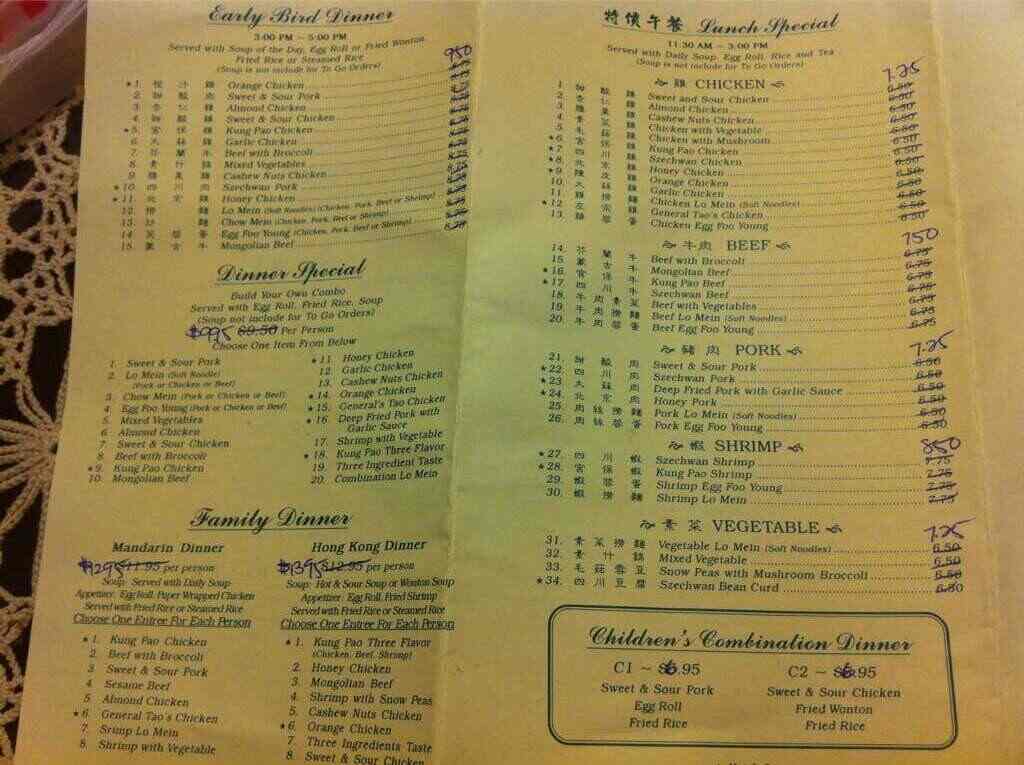 Early Bird Dinner
3:00 PM - 5:00 PM
Served with Soup of the Day, Egg Roll or Fried Wonton
Fried Rice or Steamed Rice
(Soup is not include for To Go Orders)
950
★ 1. 橙汁雞 Orange Chicken
2 甜酸肉 Sweet & Sour Pork
3 杏仁雞 Almond Chicken
4 甜酸雞 Sweet & Sour Chicken
★ 5. 宮保雞 Kung Pao Chicken
6 大蒜雞 Garlic Chicken
7 芥蘭牛 Beef with Broccoli
8 素什錦 Mixed Vegetables
9 腰果雞 Cashew Nuts Chicken
★ 10. 四川肉 Szechwan Pork
★ 11. 北京雞 Honey Chicken
12 撈麵 Lo Mein (Soft Noodles) (Chicken, Pork, Beef or Shrimp)
13 炒麵 Chow Mein (Chicken, Pork, Beef or Shrimp)
14 芙蓉蛋 Egg Foo Young (Chicken, Pork, Beef or Shrimp)
15. 蒙古牛 Mongolian Beef
Dinner Special
Build Your Own Combo
Served with Egg Roll, Fried Rice, Soup
(Soup not include for To Go Orders)
$995 $9.50 Per Person
Choose One Item From Below
1. Sweet & Sour Pork
2. Lo Mein (Soft Noodle)
(Pork or Chicken or Beef)
3. Chow Mein (Pork or Chicken or Beef)
4 Egg Foo Young (Pork or Chicken or Beef)
5 Mixed Vegetables
6. Almond Chicken
7 Sweet & Sour Chicken
8 Beef with Broccoli
★ 9. Kung Pao Chicken
10. Mongolian Beef
★ 11. Honey Chicken
12. Garlic Chicken
13. Cashew Nuts Chicken
★ 14. Orange Chicken
★ 15. General's Tao Chicken
★ 16. Deep Fried Pork with
Garlic Sauce
17. Shrimp with Vegetable
★ 18. Kung Pao Three Flavor
19. Three Ingredient Taste
20. Combination Lo Mein
Family Dinner
Mandarin Dinner
$1295 $11.95 per person
Soup: Served with Daily Soup
Appetizer: Egg Roll, Paper Wrapped Chicken
Served with Fried Rice or Steamed Rice
Choose One Entree For Each Person
★ 1. Kung Pao Chicken
2. Beef with Broccoli
3 Sweet & Sour Pork
4 Sesame Beef
5 Almond Chicken
★ 6. General Tao's Chicken
7. Srimp Lo Mein
8. Shrimp with Vegetable
Hong Kong Dinner
$1395 $12.95 per person
Soup: Hot & Sour Soup or Wonton Soup
Appetizer: Egg Roll, Fried Shrimp
Served with Fried Rice or Steamed Rice
Choose One Entree For Each Person
★ 1. Kung Pao Three Flavor
(Chicken, Beef, Shrimp)
2. Honey Chicken
3. Mongolian Beef
4. Shrimp with Snow Peas
5. Cashew Nuts Chicken
★ 6. Orange Chicken
7 Three Ingredients Taste
8. Sweet & Sour Chicken
特價午餐 Lunch Special
11:30 AM - 3:00 PM
Served with Daily Soup, Egg Roll, Rice and Tea
(Soup is not include for To Go Orders)
雞 CHICKEN 7.25
1. 甜酸雞 Sweet and Sour Chicken 6.50
2. 杏仁雞 Almond Chicken 6.50
3. 腰果雞 Cashew Nuts Chicken 6.50
4. 素菜雞 Chicken with Vegetable 6.50
5. 毛菇雞 Chicken with Mushroom 6.50
★ 6. 宮保雞 Kung Pao Chicken 6.50
★ 7. 四川雞 Szechwan Chicken 6.50
★ 8. 北京雞 Honey Chicken 6.50
★ 9. 陳皮雞 Orange Chicken 6.50
10. 大蒜雞 Garlic Chicken 6.50
11. 雞撈麵 Chicken Lo Mein (Soft Noodles) 6.50
★ 12. 左宗雞 General Tao's Chicken 6.50
13. 雞蓉蛋 Chicken Egg Foo Young 6.50
牛肉 BEEF 750
14. 芥蘭牛 Beef with Broccoli 6.75
15. 蒙古牛 Mongolian Beef 6.75
★ 16. 宮保牛 Kung Pao Beef 6.75
★ 17. 四川牛 Szechwan Beef 6.75
18. 牛肉素菜 Beef with Vegetables 6.75
19. 牛肉撈麵 Beef Lo Mein (Soft Noodles) 6.75
20. 牛肉蓉蛋 Beef Egg Foo Young 6.75
豬肉 PORK 7.25
21. 甜酸肉 Sweet & Sour Pork 6.50
★ 22. 四川肉 Szechwan Pork 6.50
★ 23. 大蒜肉 Deep Fried Pork with Garlic Sauce 6.50
★ 24. 北京肉 Honey Pork 6.50
25. 肉絲撈麵 Pork Lo Mein (Soft Noodles) 6.50
26. 肉絲蓉蛋 Pork Egg Foo Young 6.50
蝦 SHRIMP 850
★ 27. 四川蝦 Szechwan Shrimp 7.75
★ 28. 宮保蝦 Kung Pao Shrimp 7.75
29. 蝦蓉蛋 Shrimp Egg Foo Young 7.75
30. 蝦撈麵 Shrimp Lo Mein 7.75
素菜 VEGETABLE 7.25
31. 素菜撈麵 Vegetable Lo Mein (Soft Noodles) 6.50
32. 素什錦 Mixed Vegetable 6.50
33. 毛菇雪豆 Snow Peas with Mushroom Broccoli 6.50
★ 34. 四川豆腐 Szechwan Bean Curd 6.50
Children's Combination Dinner
C1 ~ $6.95
Sweet & Sour Pork
Egg Roll
Fried Rice
C2 ~ $6.95
Sweet & Sour Chicken
Fried Wonton
Fried Rice